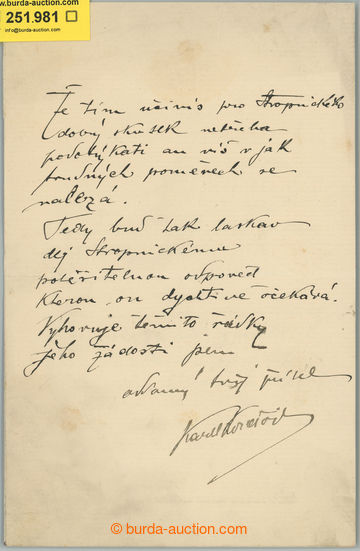 www.burda-auction.com
251.981
info@burda-auction.com
Že tím učiníš pro Stropnického
dobrý skutek netřeba
podotýkati an víš v jak
trudných poměrech se
nalézá.
Tedy buď tak laskav
dej Stropnickému
potěšitelnou odpověď
kterou on dychtivě očekává.
Vyhovuje těmito řádky
jeho žádosti jsem
oddaný tvůj přítel
Karel
© burda-auction.com